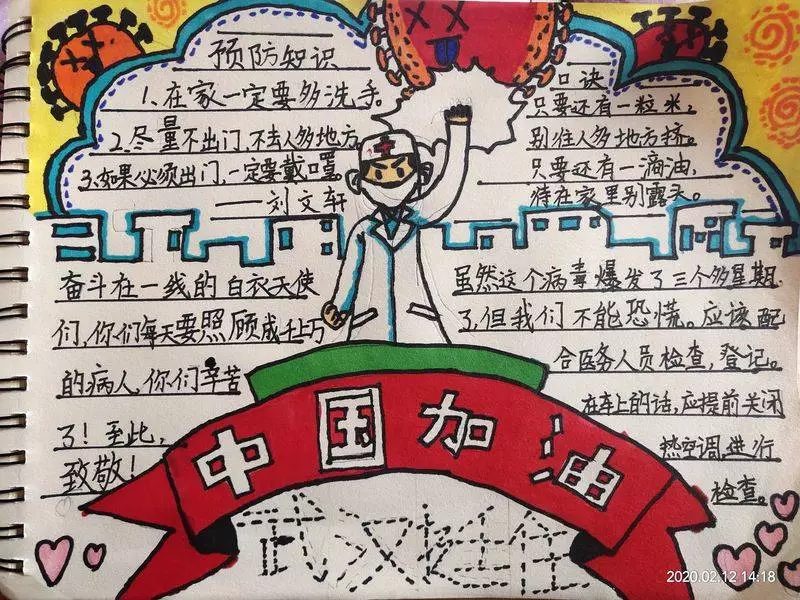 预防知识
1、在家一定要多洗手。
2、尽量不出门,不去人多地方
3、如果必须出门,一定要戴口罩。
——刘文轩
口诀
只要还有一粒米,
别往人多地方挤。
只要还有一滴油,
待在家里别露头。
奋斗在一线的白衣天使
们,你们每天要照顾成千上万
的病人,你们辛苦
了!至此,
致敬!
虽然这个病毒爆发了三个多星期
了,但我们不能恐慌。应该配
合医务人员检查,登记。
在车上的话,应提前关闭
热空调,进行
检查。
中国加油
武汉挺住
2020.02.12 14:18